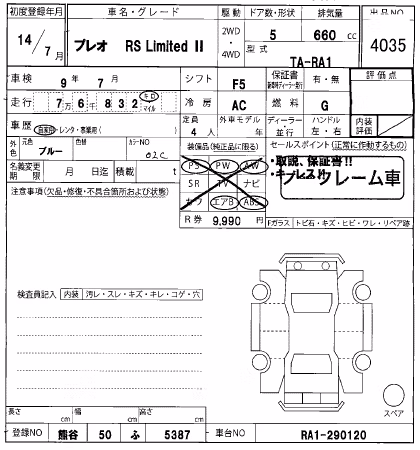 初度登録年月 車名・グレード 駆動 ドア数・形状 排気量 出品NO
14/7月 プレオ RS Limited II 2WD・4WD 5 660 cc 4035
型式 TA-RA1
車検 9年 7月 シフト F5 保証書 有・無 評価点
走行 7万6千832 キロ マイル 冷房 AC 燃料 G
車歴 自家用・レンタ・事業用( ) 定員 4人 外車モデル 年 ディーラー・並行 ハンドル 左・右 内装評価
外色 元色 ブルー 色替 カラーNO 02C
装備品(純正品に限る) セールスポイント(正常に作動するもの)
PS PW AW
・取説、保証書!!
・キーレス!!
ノークレーム車
名義変更期限 月 日迄 積載 t
SR TV ナビ
注意事項(欠品・修復・不具合箇所および状態)
カワ エアB ABS
R券 9,990 円 Fガラス トビ石・キズ・ヒビ・ワレ・リペア跡
検査員記入 内装 汚レ・スレ・キズ・キレ・コゲ・穴
スペア
長さ cm 幅 cm 高さ cm
登録NO 熊谷 50 ふ 5387 車台NO RA1-290120